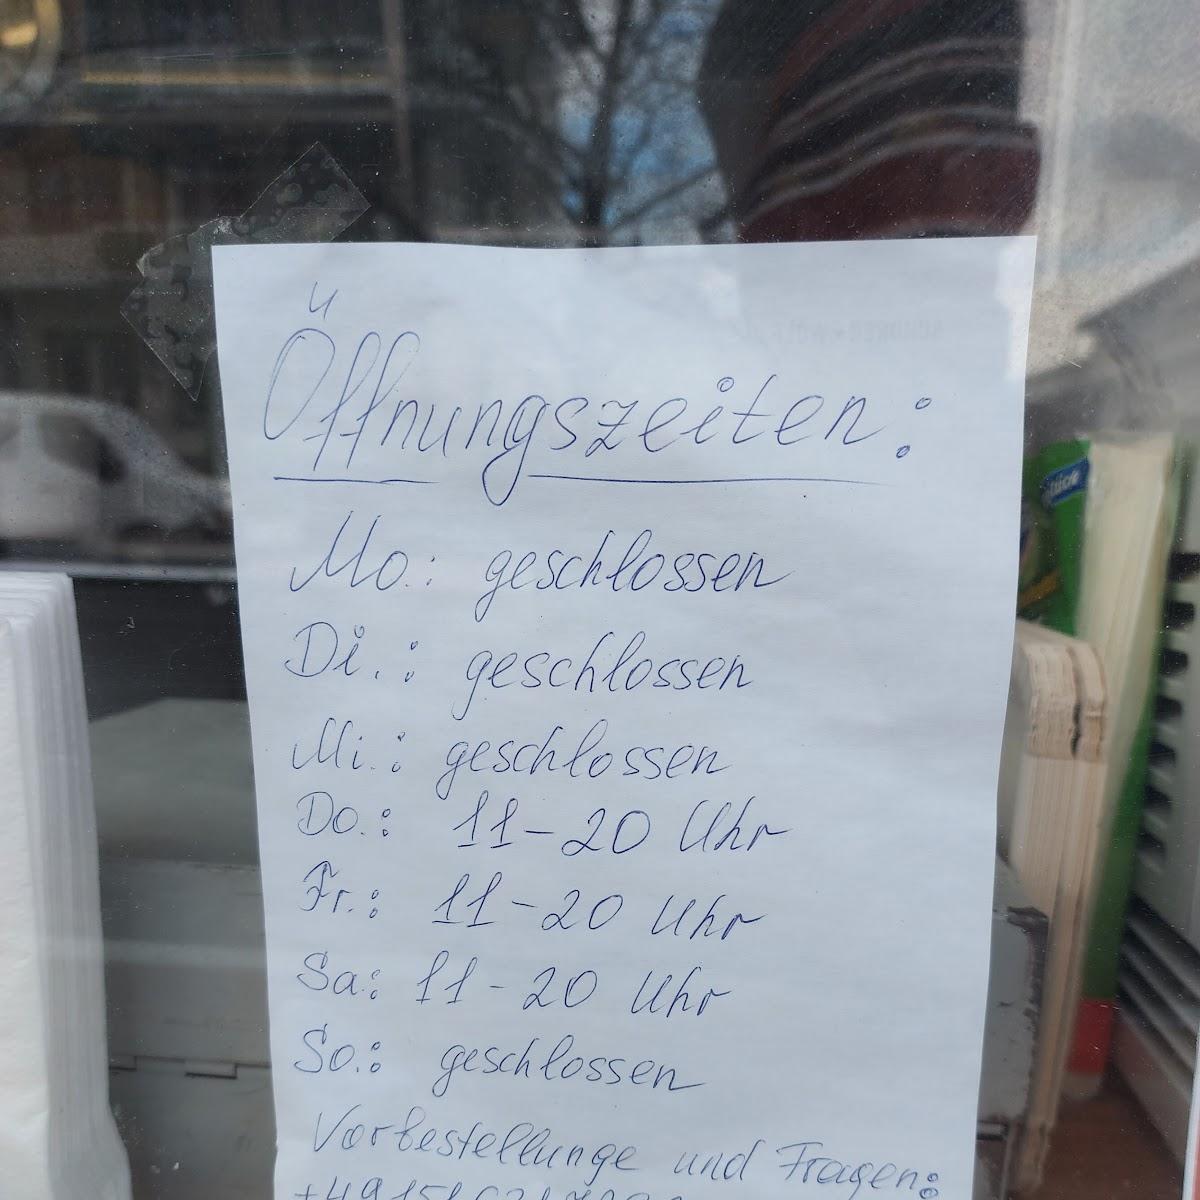 Öffnungszeiten:
Mo.: geschlossen
Di.: geschlossen
Mi.: geschlossen
Do.: 11-20 Uhr
Fr.: 11-20 Uhr
Sa.: 11-20 Uhr
So.: geschlossen
Vorbestellunge und Fragen: